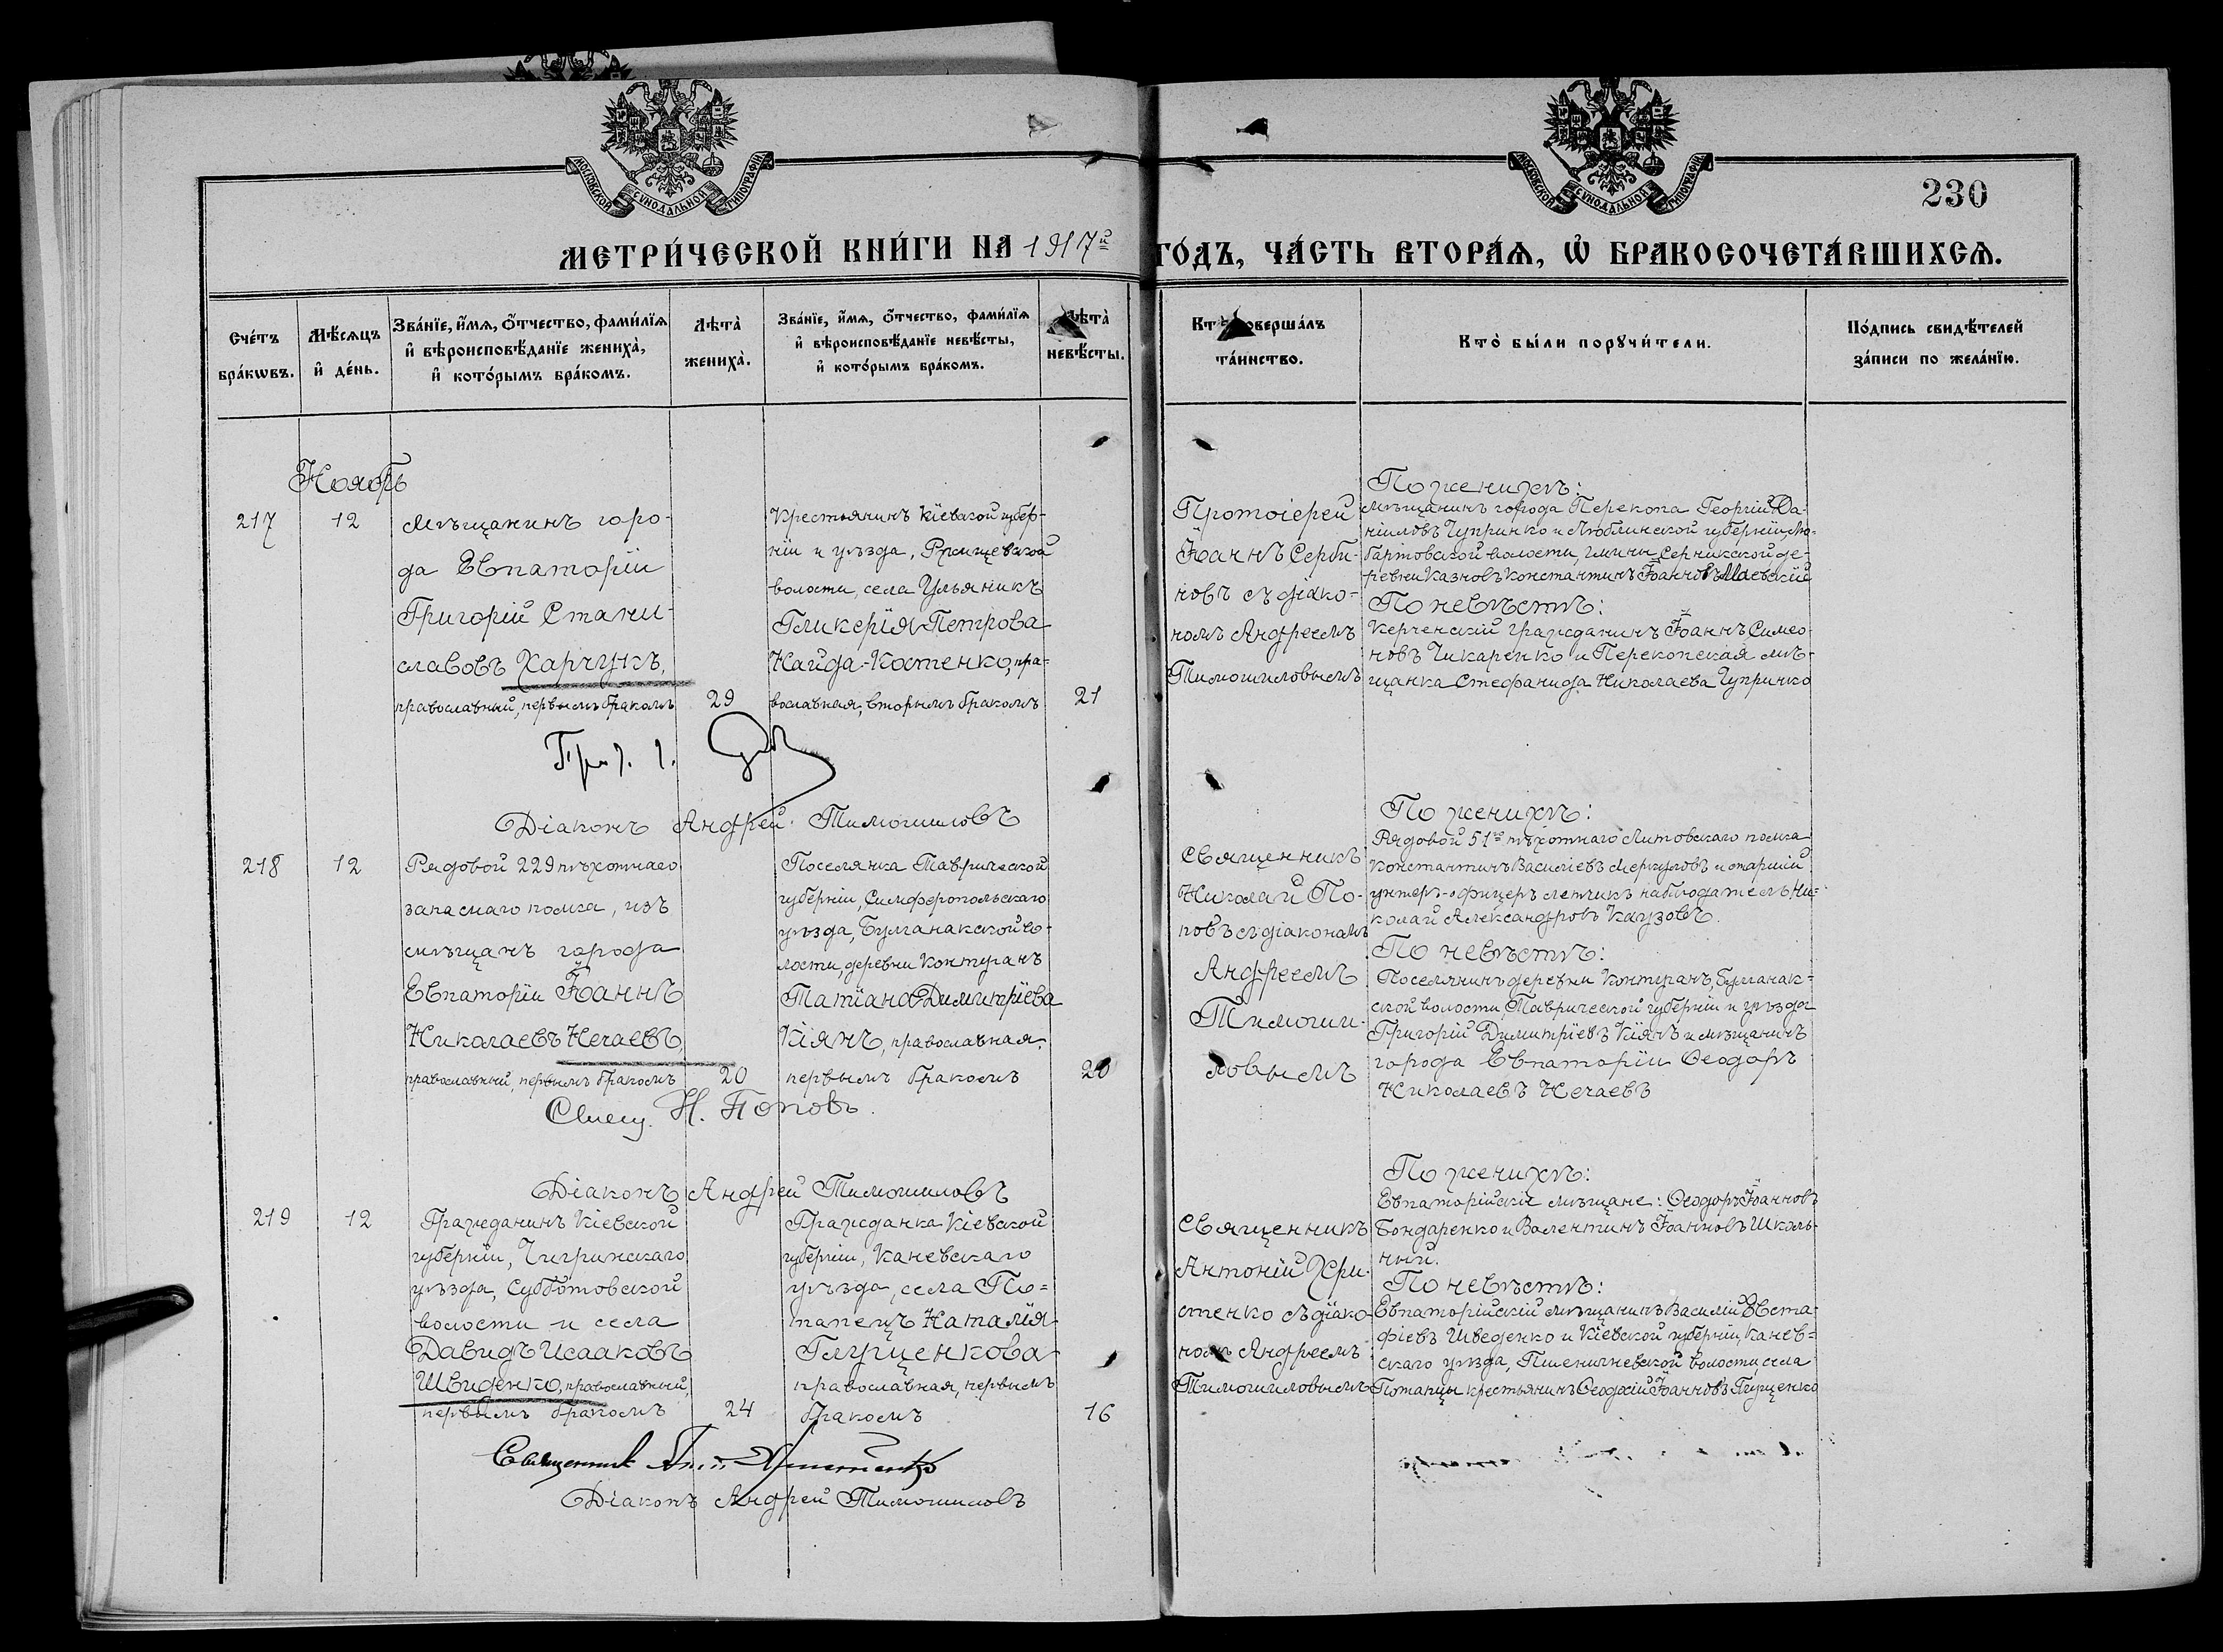 МОСКОВСКОЙ СѴНОДАЛЬНОЙ ТИПОГРАФІИ
МОСКОВСКОЙ СѴНОДАЛЬНОЙ ТИПОГРАФІИ
230
МЕТРИ́ЧЕСКОЙ КНИ́ГИ НА 1917й ГО́ДЪ, ЧА́СТЬ ВТОРА́Ѧ, Ѡ БРАКОСОЧЕТА́ВШИХСѦ.
Сче́тъ бра́кѡвъ.
Мѣ́сѧцъ и де́нь.
Зва́нїе, и́мѧ, ѻ́тчество, фами́лїѧ и вѣроисповѣ́данїе жениха̀, и кото́рымъ бра́комъ.
Лѣта̀ жениха̀.
Зва́нїе, и́мѧ, ѻ́тчество, фами́лїѧ и вѣроисповѣ́данїе невѣ́сты, и кото́рымъ бра́комъ.
Лѣта̀ невѣ́сты.
Кто̀ соверша́лъ та́инство.
Кто̀ бы́ли порꙋчи́тели.
По́дпись свидѣ́телей за́писи по жела́нїю.
Ноябрь
217
12
Мѣщанинъ горо-
да Евпаторіи
Григорій Стани-
славовъ Харчукъ,
православный, первымъ бракомъ
29
Крестьянинъ Кіевской губер-
ніи и уѣзда, Ржищевской
волости, села Ульяникъ
Гликерія Петрова
Найда-Костенко, пра-
вославная, вторымъ бракомъ
21
Протоіерей
Іоаннъ Серби-
новъ съ діако-
номъ Андреемъ
Тимошиловымъ
По женихѣ:
мѣщанинъ города Перекопа Георгій Да-
ніиловъ Чупринко и Люблинской губерніи, Лю-
бартовской волости, гмины Серникской де-
ревни Казновъ Константинъ Іоанновъ Маевскій
По невѣстѣ:
Керченскій гражданинъ Іоаннъ Симео-
новъ Чикаренко и Перекопская мѣ-
щанка Стефанида Николаева Чупринко
Діаконъ Андрей Тимошиловъ
218
12
Рядовой 229 пѣхотнаго
запаснаго полка, изъ
мѣщанъ города
Евпаторіи Іоаннъ
Николаевъ Нечаевъ,
православный, первымъ бракомъ
20
Поселянка Таврической
губерніи, Симферопольскаго
уѣзда, Булганакской во-
лости, деревни Контуганъ
Татіана Димитріева
Кіянъ, православная,
первымъ бракомъ
20
Священникъ
Николай По-
повъ съ діакономъ
Андреемъ
Тимоши-
ловымъ
По женихѣ:
Рядовой 51го пѣхотнаго Литовскаго полка
Константинъ Василіевъ Меркуловъ и старшій
унтеръ-офицеръ летчикъ наблюдатель Ни-
колай Александровъ Каузовъ.
По невѣстѣ:
Поселянинъ деревни Контуганъ, Булганак-
ской волости, Таврической губерніи и уѣзда
Григорій Димитріевъ Кіянъ и мѣщанинъ
города Евпаторіи Ѳеодоръ
Николаевъ Нечаевъ
Свящ. Н. Поповъ.
Діаконъ Андрей Тимошиловъ
219
12
Гражданинъ Кіевской
губерніи, Чигринскаго
уѣзда, Субботовской
волости и села
Давидъ Исааковъ
Швиденко, православный,
первымъ бракомъ
24
Гражданка Кіевской
губерніи, Каневскаго
уѣзда, села По-
тапецъ Наталія
Глущенкова
православная, первымъ
бракомъ
16
Священникъ
Антоній Хри-
стенко съ діако-
номъ Андреемъ
Тимошиловымъ
По женихѣ:
Евпаторійскіе мѣщане: Ѳеодоръ Іоанновъ
Бондаренко и Валентинъ Іоанновъ Школь-
ный.
По невѣстѣ:
Евпаторійскій мѣщанинъ Василій Евста-
фіевъ Шведенко и Кіевской губерніи, Канев-
скаго уѣзда, Пшеничневской волости села
Потапцы крестьянинъ Ѳеодосій Іоанновъ Глущенко
Священникъ Ант. Христенко
Діаконъ Андрей Тимошиловъ